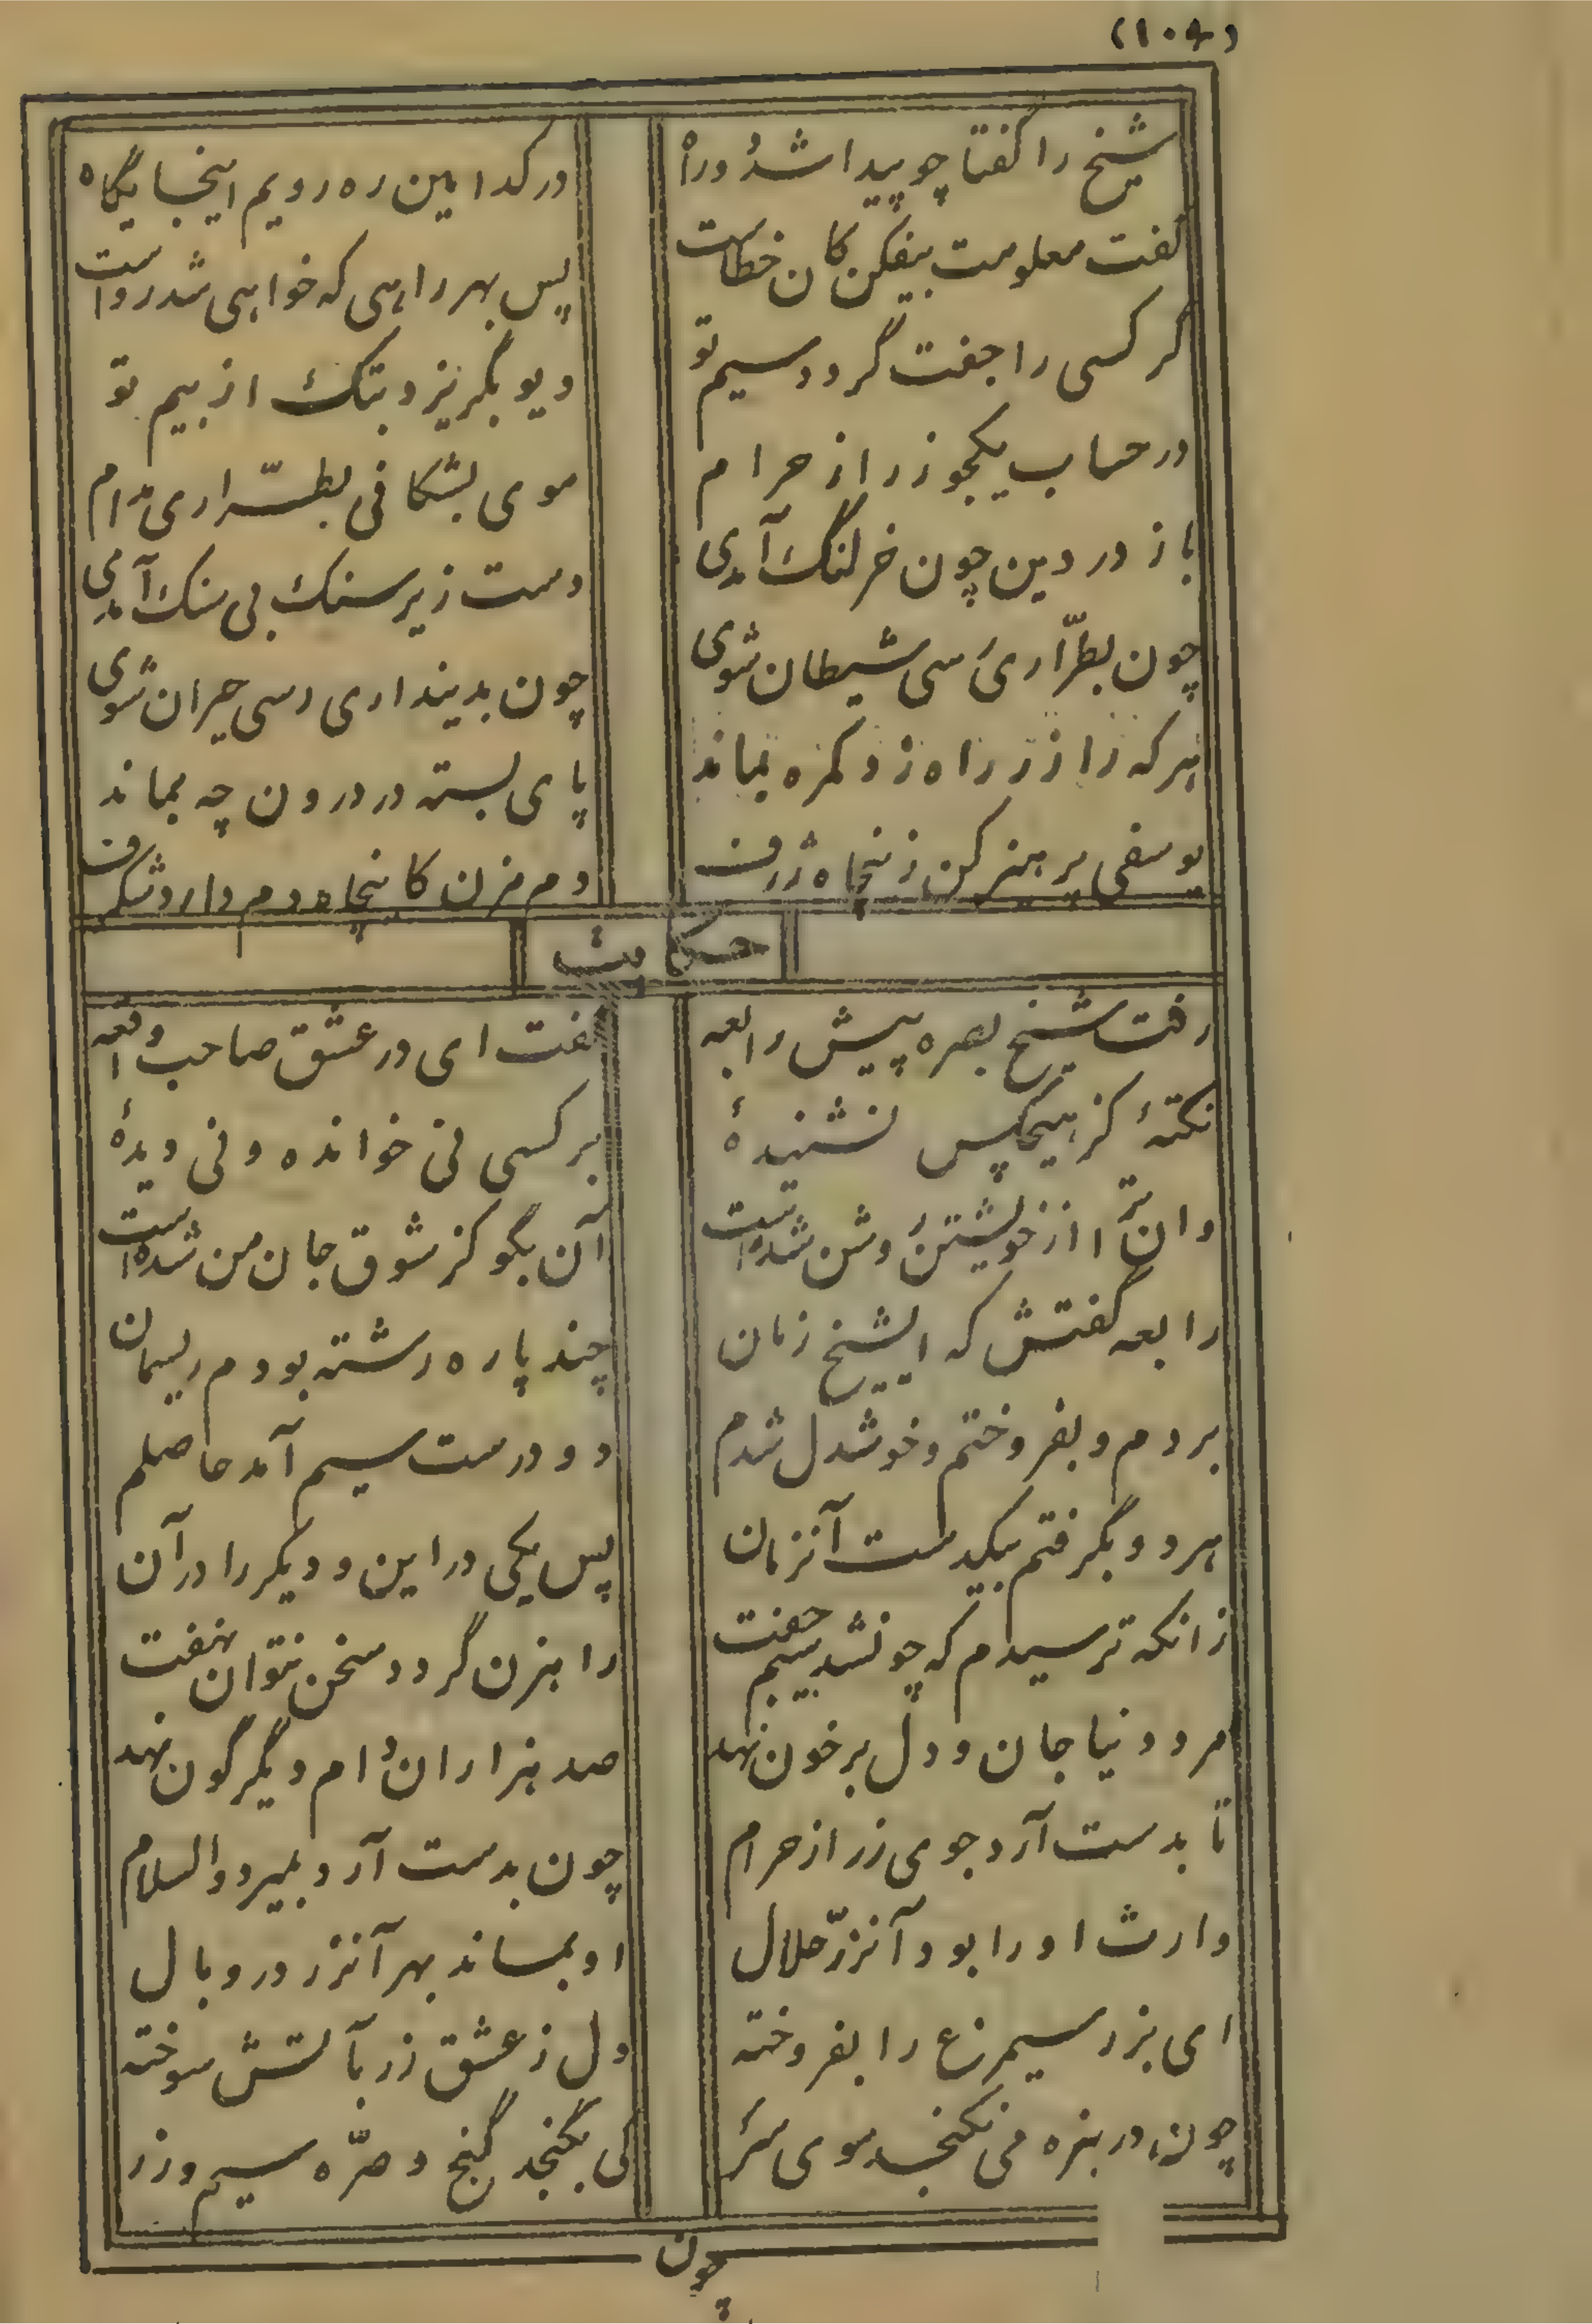 (۱۰۴)
شیخ را گفتا چو پیدا شد دو راه در کدامین ره رویم اینجایگاه
گفت معلومت بیفکن کان خطاست پس بهر راهی که خواهی شد رواست
گر کسی را جفت گردد سیم تو دیو بگریزد بتک از بیم تو
در حساب یکجو زر از حرام موی بشکافی بطرّاری مدام
باز در دین چون خر لنگ آمدی دست زیر سنک بی سنک آمدی
چون بطرّاری رسی شیطان شوی چون بدینداری رسی حیران شوی
هر که را زر راه زد گمره بماند پای بسته در درون چه بماند
یوسفی پرهیز کن زینچاه ژرف دم مزن کاینچاه دم دارد شگرف
حکایت
رفت شیخ بصره پیش رابعه گفت ای در عشق صاحب واقعه
نکتهٔ کز هیچکس نشنیدهٔ بر کسی نی خوانده و نی دیدهٔ
وان ترا از خویشتن روشن شده است آن بگو کز شوق جان من شده است
رابعه گفتش که ایشیخ زمان چند پاره رشته بودم ریسمان
بردم و بفروختم و خوشدل شدم دو درست سیم آمد حاصلم
هر دو بگرفتم بیکدست آنزمان پس یکی در این و دیکر را در آن
زانکه ترسیدم که چونشد سیم جفت راهزن گردد سخن نتوان نهفت
مرد دنیا جان و دل بر خون نهد صد هزاران دام دیگرگون نهد
تا بدست آرد جوی زر از حرام چون بدست آرد بمیرد والسلام
وارث او را بود آنزر حلال او بماند بهر آنزر در وبال
ای بزر سیمرغ را بفروخته دل ز عشق زر بآتش سوخته
چون در بنره می نکنجد موی سر کی بگنجد گنج و صرّه سیم و زر
چون